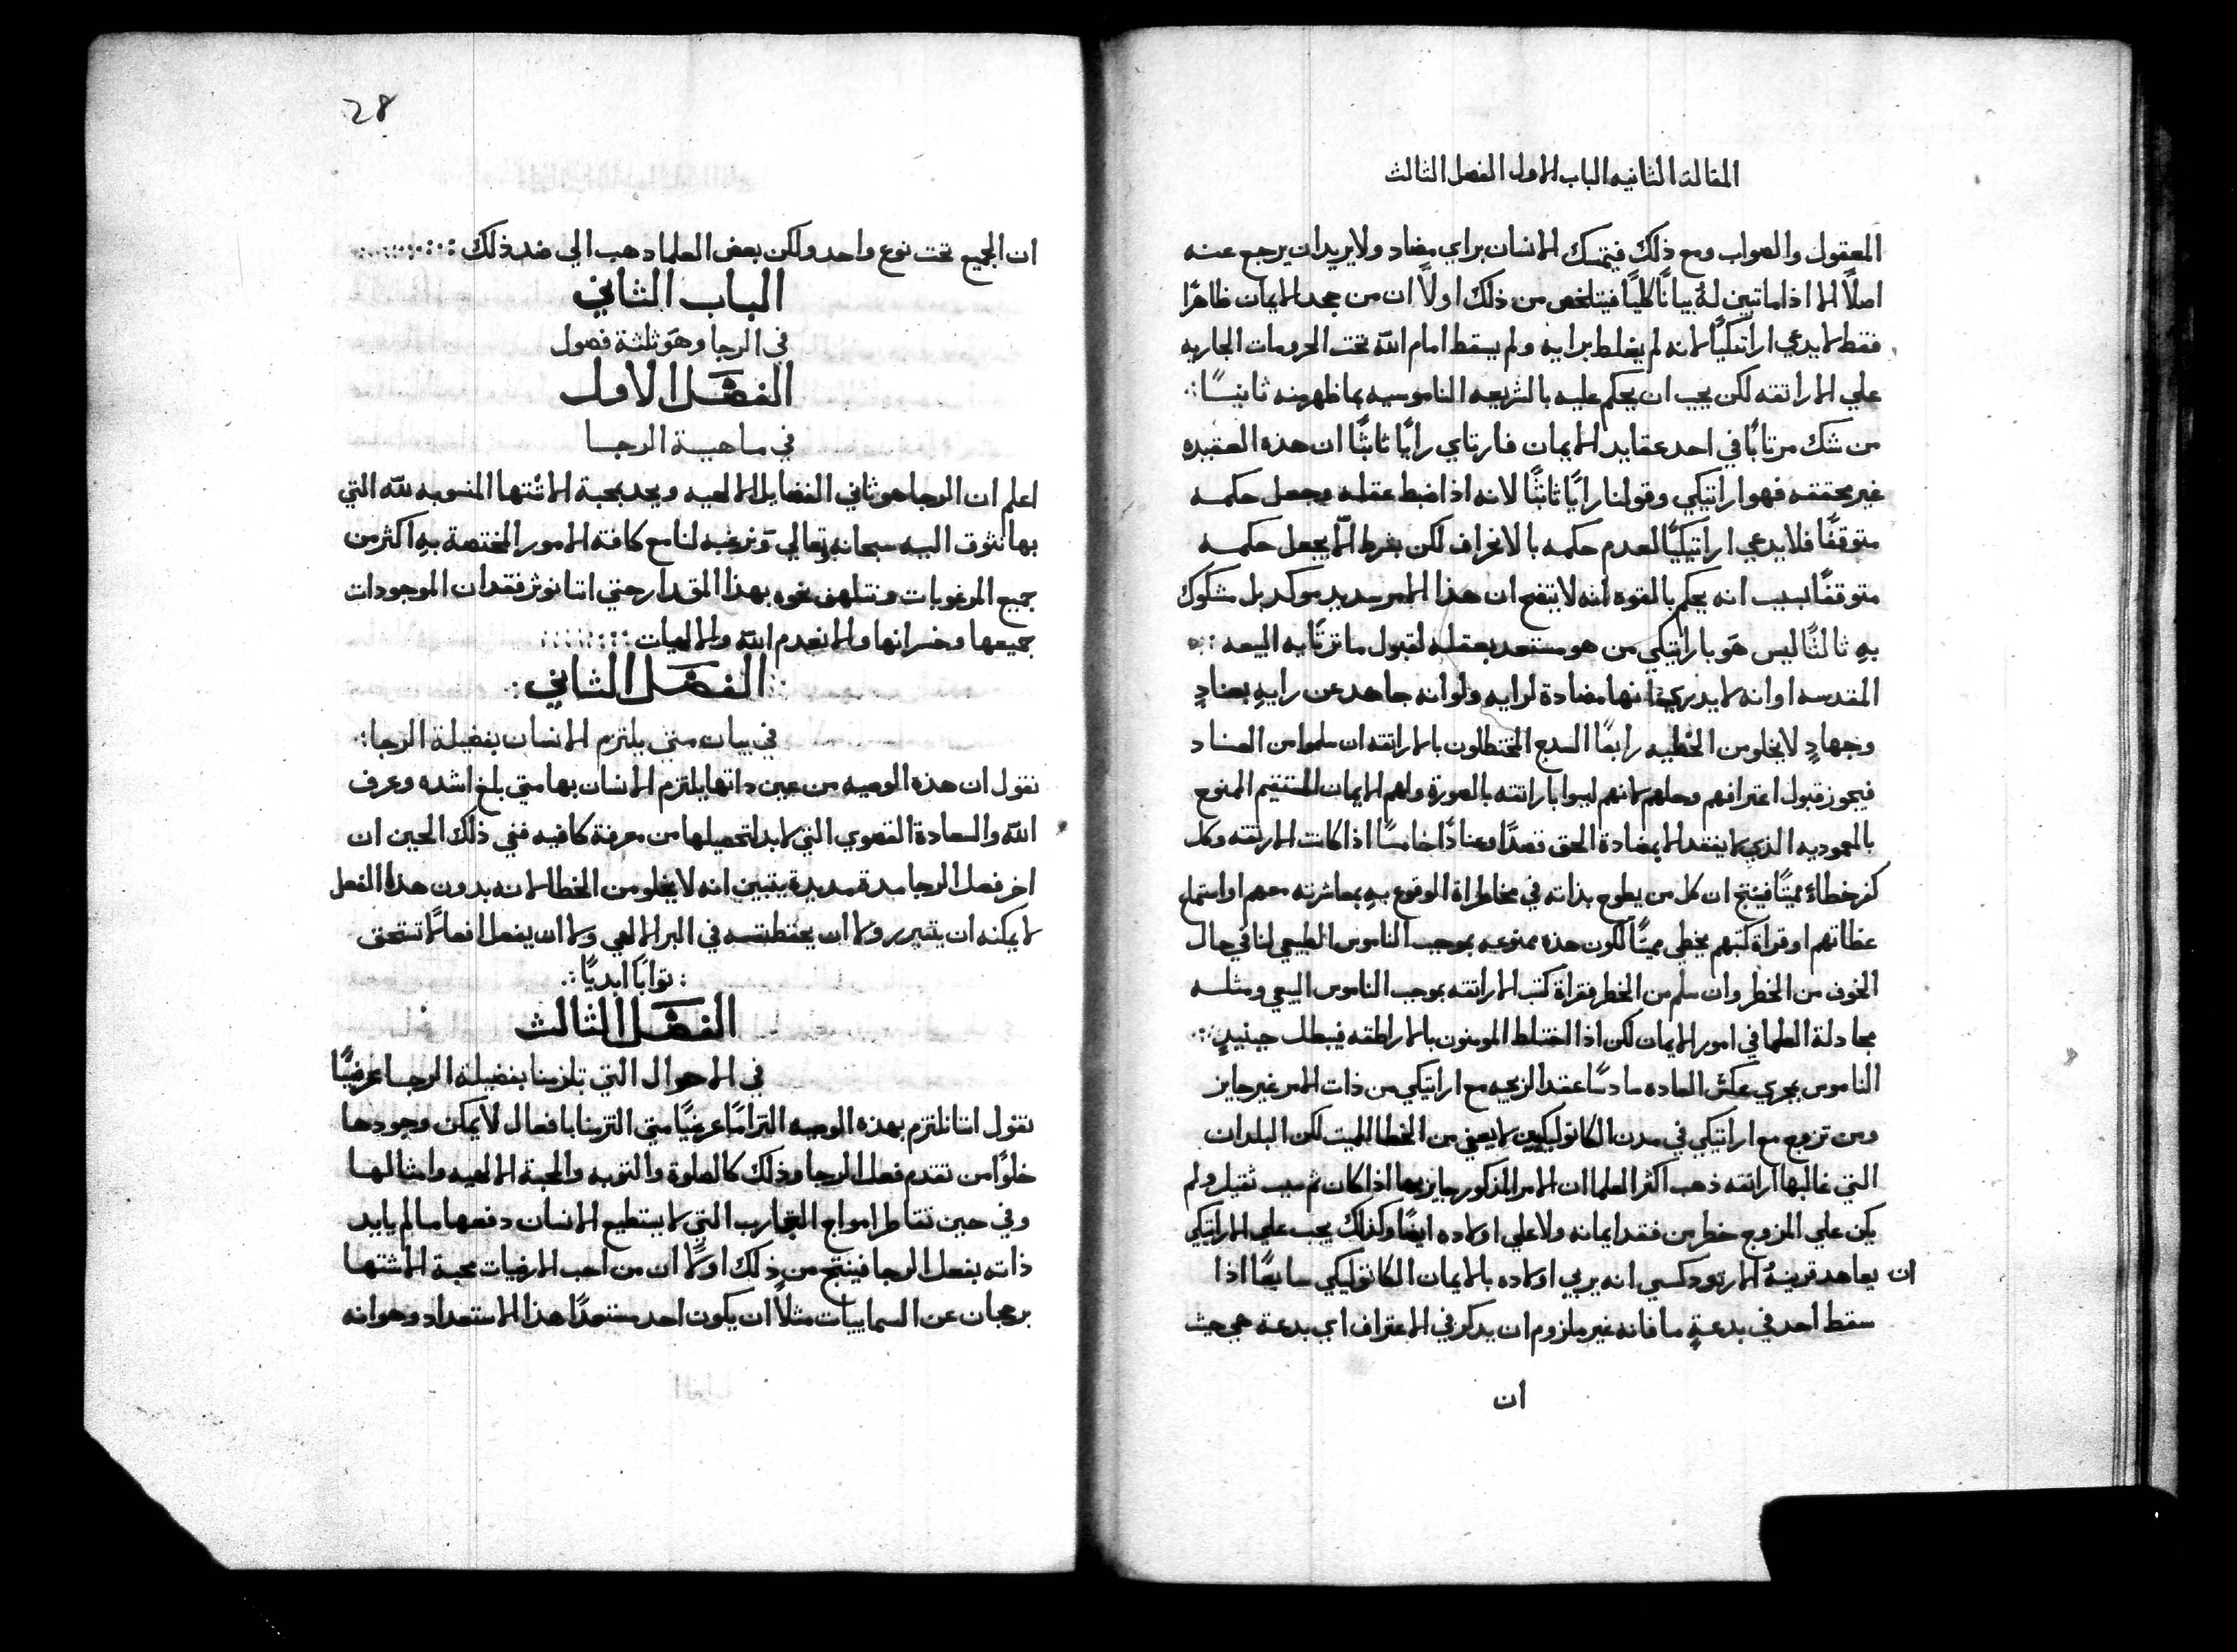 المقالة الثانيه الباب الاول الفصل الثالث
المعقول والصواب ومع ذلك فيتمسك الانسان براي مضاد ولا يريد ان يرجع عنه
اصلاً الا اذا ما تبين لهُ بياناً كليًا فيتلخص من ذلك اولاً ان من جحد الايمان ظاهرًا
فقط لا يدعي اراتيكيًا لانه لم يغلط برايه ولم يسقط امام الله تحت الحرومات الجاريه
علي الاراتقه لكن يجب ان يحكم عليه بالشريعه الناموسيه بما ظهر منه ثانيًا
من شك مرتابًا في احد عقايد الايمان فارتاي رايًا ثابتًا ان هذه العقيده
غير محققه فهو اراتيكي وقولنا رايًا ثابتًا لانه اذا ضبط عقله وجعل حكمه
متوقفًا فلا يدعي اراتيكيًا لعدم حكمه بالانحراف لكن بشرط الّا يجعل حكمه
متوقفًا بسبب انه يحكم بالقوه انه لا يتضح ان هذا الامر سديد موكد بل مشكوك
بهِ ثالثًا ليس هوَ باراتيكي من هو مستعد بعقله لقبول ما ترتايه البيعه
المقدسه او انه لا يدري انها مضادة لرايه ولو انه جاهد عن رايهِ بعنادٍ
وجهادٍ لا يخلو من الخطيه رابعًا السدج المختطلون بالاراتقه ان سلموا من العناد
فيجوز قبول اعترافهم وحلهم لانهم ليسوا باراتقه بالصورة ولهم الايمان المستقيم الممنوح
بالمعموديه الذي لا يفقد الا بمضادة الحق قصدًا وعنادًا خامسًا اذا كانت الارتقه وكل
كفر خطاءً مميتًا فينتج ان كل من يطوح بذاته في مخاطراة الوقوع بهِ بمعاشرته معهم او استماع
عظاتهم او قراة كتبهم يخطي مميتًا لكون هذه ممنوعيه بموجب الناموس الطبيعي لنا في حال
الخوف من الخطر وان سلم من الخطر فقراة كتب الاراتقه بموجب الناموس البيعي ومثله
مجادلة العلما في امور الايمان لكن اذا اختلط المومنون بالاراطقه فيبطل حينيذٍ
الناموس بمجري عكس العاده سادسًا عقد الزيجه مع اراتيكي من ذات الامر غير جايز
ومن تزوج مع اراتيكي في مدن الكاتوليكيين لا يعفي من الخطا المميت لكن البلدان
التي غالبها اراتقه ذهب اكثر العلما ان الامر المذكور جايز بها اذا كان ثم سبب ثقيل ولم
يكن علي المزوج خطر من فقد ايمانه ولا علي اولاده ايضًا وكذلك يجب علي الاراتيكي
ان يعاهد قرينهُ الارتودكسي انه يربي اولاده بالايمان الكاتوليكي سابعًا اذا
سقط احد في بدعةٍ ما فانه غير ملزوم ان يذكر في الاعتراف اي بدعة هي حيث
ان
28
ان الجميع تحت نوع واحد ولكن بعض العلما دهب الي ضد ذلك
الباب الثاني
في الرجا وهوَ ثلثة فصول
الفصل الاول
في ماهية الرجا
اعلم ان الرجا هو ثاني الفضايل الالهيه ويحد بمحبة الاشتها المنسوبه لله التي
بها نتوق اليه سبحانه وتعالي ونرغبه لنا مع كافة الامور المختصة بهِ اكثر من
جميع المرغوبات ونتلهف نحوه بهذا المقدار حتي اننا نوثر فقدان الموجودات
جميعها وخسرانها ولا نعدم الله والالهيات
الفصل الثاني
في بيان متي يلتزم الانسان بفضيلة الرجا
نقول ان هذه الوصيه من عين داتها يلتزم الانسان بها متي بلغ اشده وعرف
الله والسعادة القصوي التي لا بد لتحصيلها من معرفة كافيه ففي ذلك الحين ان
اخر فعل الرجا مدة مديدة يتبين انه لا يخلو من الخطا لانه بدون هذا الفعل
لا يمكنه ان يتبرر ولا ان يحفظ نفسه في البر الالهي ولا ان يفعل افعالاً تستحق
ثوابًا ابديًا
الفصل الثالث
في الاحوال التي تلزمنا بفضيلة الرجا عرضيًا
نقول اننا نلتزم بهذه الوصيه التزامًا عرضيًا متي التزمنا بافعال لا يمكن وجودها
خلوًا من تقدم فعل الرجا وذلك كالصلوة والتوبه والمحبة الالهيه وامثالها
وفي حين تقاطر امواج التجارب التي لا يستطيع الانسان دفعها ما لم يايد
ذاته بفعل الرجا فينتج من ذلك اولاً ان من احب الارضيات محبة الاشتها
برجحان عن السماييات مثلاً ان يكون احد مستعدًا هذا الاستعداد وهو انه